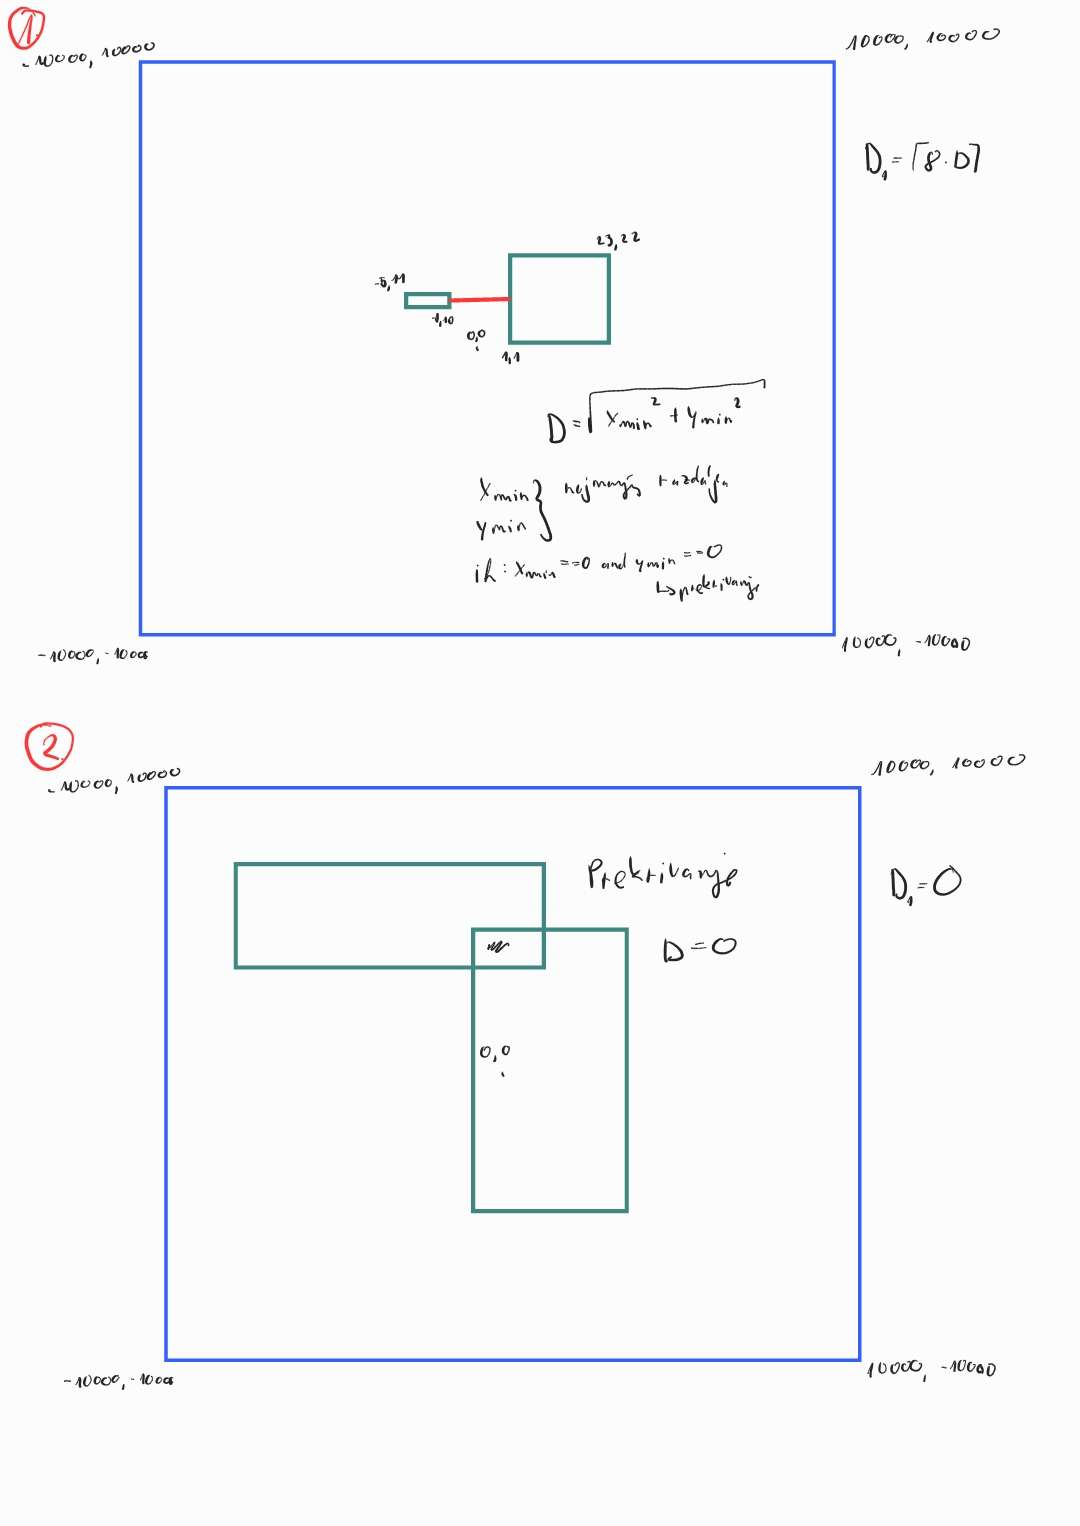 1.
-10000, 10000
10000, 10000
D₁ = ⌈8·D⌉
23,22
-5,11
-1,10
0,0
1,1
D = √(xmin² + ymin²)
xmin } najmanjša razdalja
ymin
if: xmin == 0 and ymin == 0
↳ prekrivanje
-10000, -10000
10000, -10000
2.
-10000, 10000
10000, 10000
Prekrivanje
D₁ = 0
D = 0
0,0
-10000, -10000
10000, -10000